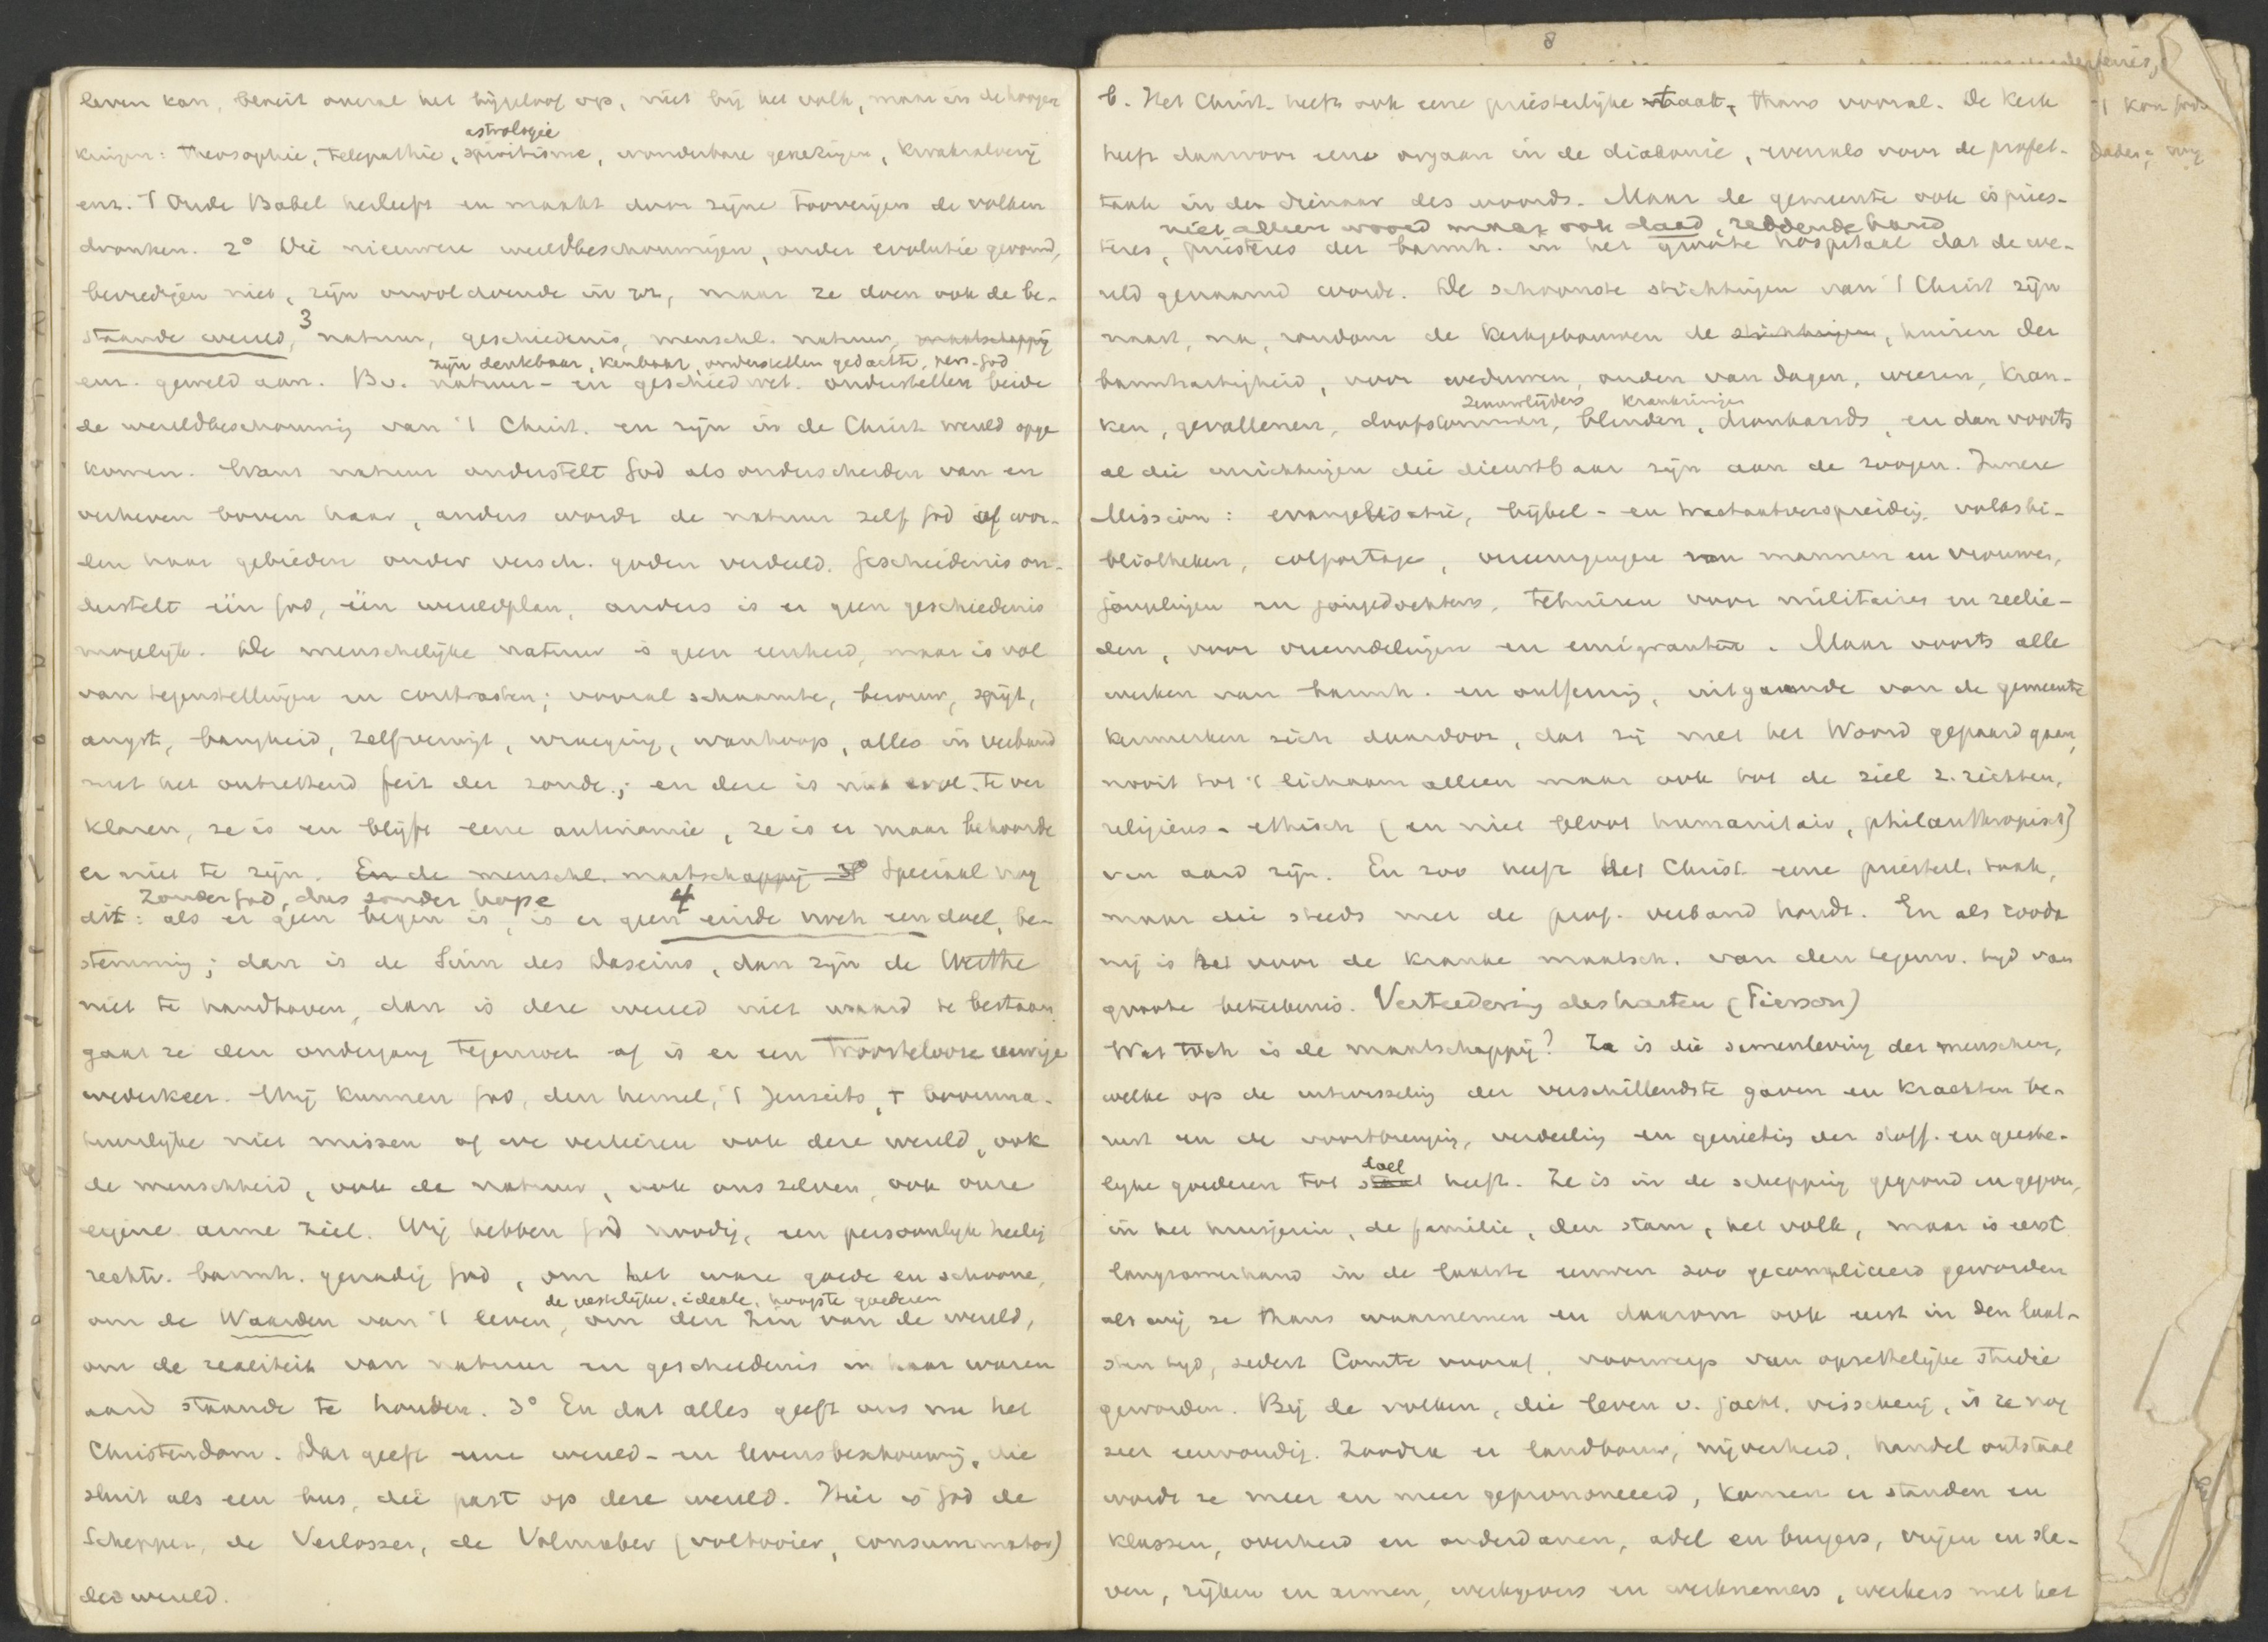 leven kan, bereit overal het bijgeloof op, niet bij het volk, maar in de hoogere
astrologie
kringen: theosophie, telepathie, spiritisme, wonderbare genezingen, kwakzalverij
enz. 't Oude Babel herleeft en maakt door zijne tooverijen de volken
dronken. 2° Die nieuwere wereldbeschouwingen, onder evolutie gevormd,
bevredigen niet, zijn onvoldoende in zz, maar ze doen ook de be-
staande wereld, 3 natuur, geschiedenis, menschl. natuur, maatschappij
zijn denkbaar, kenbaar, onderstellen gedachte, pers. God
enz. geweld aan. Bv. natuur- en geschied wet. onderstellen beide
de wereldbeschouwing van 't Christ. en zijn in de Christ. wereld opge
komen. Want natuur onderstelt God als onderscheiden van en
verheven boven haar, anders wordt de natuur zelf God of wor-
den haar gebieden onder versch. goden verdeeld. Geschiedenis on-
derstelt één God, één wereldplan, anders is er geen geschiedenis
mogelijk. De menschelijke natuur is geen eenheid, maar is vol
van tegenstellingen en contrasten; vooral schaamte, berouw, spijt,
angst, bangheid, zelfverwijt, wroeging, wanhoop, alles in verband
met het ontzettend feit der zonde; en deze is niet evol. te ver
klaren, ze is en blijft eene antinomie, ze is er maar behoorde
er niet te zijn. En de menschl. maatschappij 3° Speciaal nog
Zonder God, dus zonder hope
dit: als er geen begin is, is er geen 4 einde noch een doel, be-
stemming; dan is de Sinn des Daseins, dan zijn de Werthe
niet te handhaven, dan is deze wereld niet waard te bestaan,
gaat ze den ondergang tegemoet of is er een troostelooze eeuwige
wederkeer. Wij kunnen God, den hemel, 't Jenseits, 't bovenna-
tuurlijke niet missen of we verliezen ook deze wereld, ook
de menschheid, ook de natuur, ook ons zelven, ook onze
eigene arme ziel. Wij hebben God noodig, een persoonlijk heilig
rechtv. barmh. genadig God, om het ware goede en schoone,
de zedelijke, ideale, hoogste goederen
om de Waarden van 't leven, om den Zin van de wereld,
om de realiteit van natuur en geschiedenis in haar waren
aard staande te houden. 3° En dat alles geeft ons nu het
Christendom. Dat geeft eene wereld- en levensbeschouwing, die
sluit als een bus, die past op deze wereld. Hier is God de
Schepper, de Verlosser, de Volmaker (voltooier, consummator)
der wereld.
8
b. Het Christ. heeft ook eene priesterlijke taak, thans vooral. De kerk
heeft daarvoor eene orgaan in de diakonie, evenals voor de profet.
taak in den dienaar des woords. Maar de gemeente ook is pries-
niet alleen woord maar ook daad, reddende hand
teres, priesteres der barmh. in het groote hospitaal dat de we-
reld genaamd wordt. De schoonste stichtingen van 't Christ zijn
naast, na, rondom de kerkgebouwen de stichtingen, huizen der
barmhartigheid, voor weduwen, ouden van dagen, weezen, kran-
zenuwlijders krankzinnigen
ken, gevallenen, doofstommen, blinden, dronkaards, en dan voorts
al die inrichtingen die dienstbaar zijn aan de zoogen. Innere
Mission: evangelisatie, bijbel- en tractaatverspreiding, volksbi-
bliotheken, colportage, vereenigingen van mannen en vrouwen,
jongelingen en jongedochters, tehuizen voor militairen en zeelie-
den, voor vreemdelingen en emigranten. Maar voorts alle
werken van barmh. en ontferming, uitgaande van de gemeente
kenmerken zich daardoor, dat zij met het Woord gepaard gaan,
nooit tot 't lichaam alleen maar ook tot de ziel z. richten,
religieus-ethisch (en niet bloot humanitair, philanthropisch)
van aard zijn. En zoo heeft het Christ. eene priesterl. taak,
maar die steeds met de prof. verband houdt. En als zooda
nig is het voor de kranke maatsch. van den tegenw. tijd van
groote beteekenis. Verteedering des harten (Pierson)
Wat toch is de maatschappij? Ze is die samenleving der menschen,
welke op de uitwisseling der verschillendste gaven en krachten be-
rust en de voortbrenging, verdeeling en genieting der stoff. en geeste-
doel
lijke goederen tot heeft. Ze is in de schepping gegrond en gegeven,
in het huisgezin, de familie, den stam, het volk, maar is eerst
langzamerhand in de laatste eeuwen zoo gecompliceerd geworden
als wij ze thans waarnemen en daarom ook eerst in den laat-
sten tijd, sedert Comte vooral, voorwerp van opzettelijke studie
geworden. Bij de volken, die leven v. jacht, visscherij, is ze nog
zeer eenvoudig. Zoodra er landbouw, nijverheid, handel ontstaat
wordt ze meer en meer geprononceerd, komen er standen en
klassen, overheid en onderdanen, adel en burgers, vrijen en sla-
ven, rijken en armen, werkgevers en werknemers, werkers met het